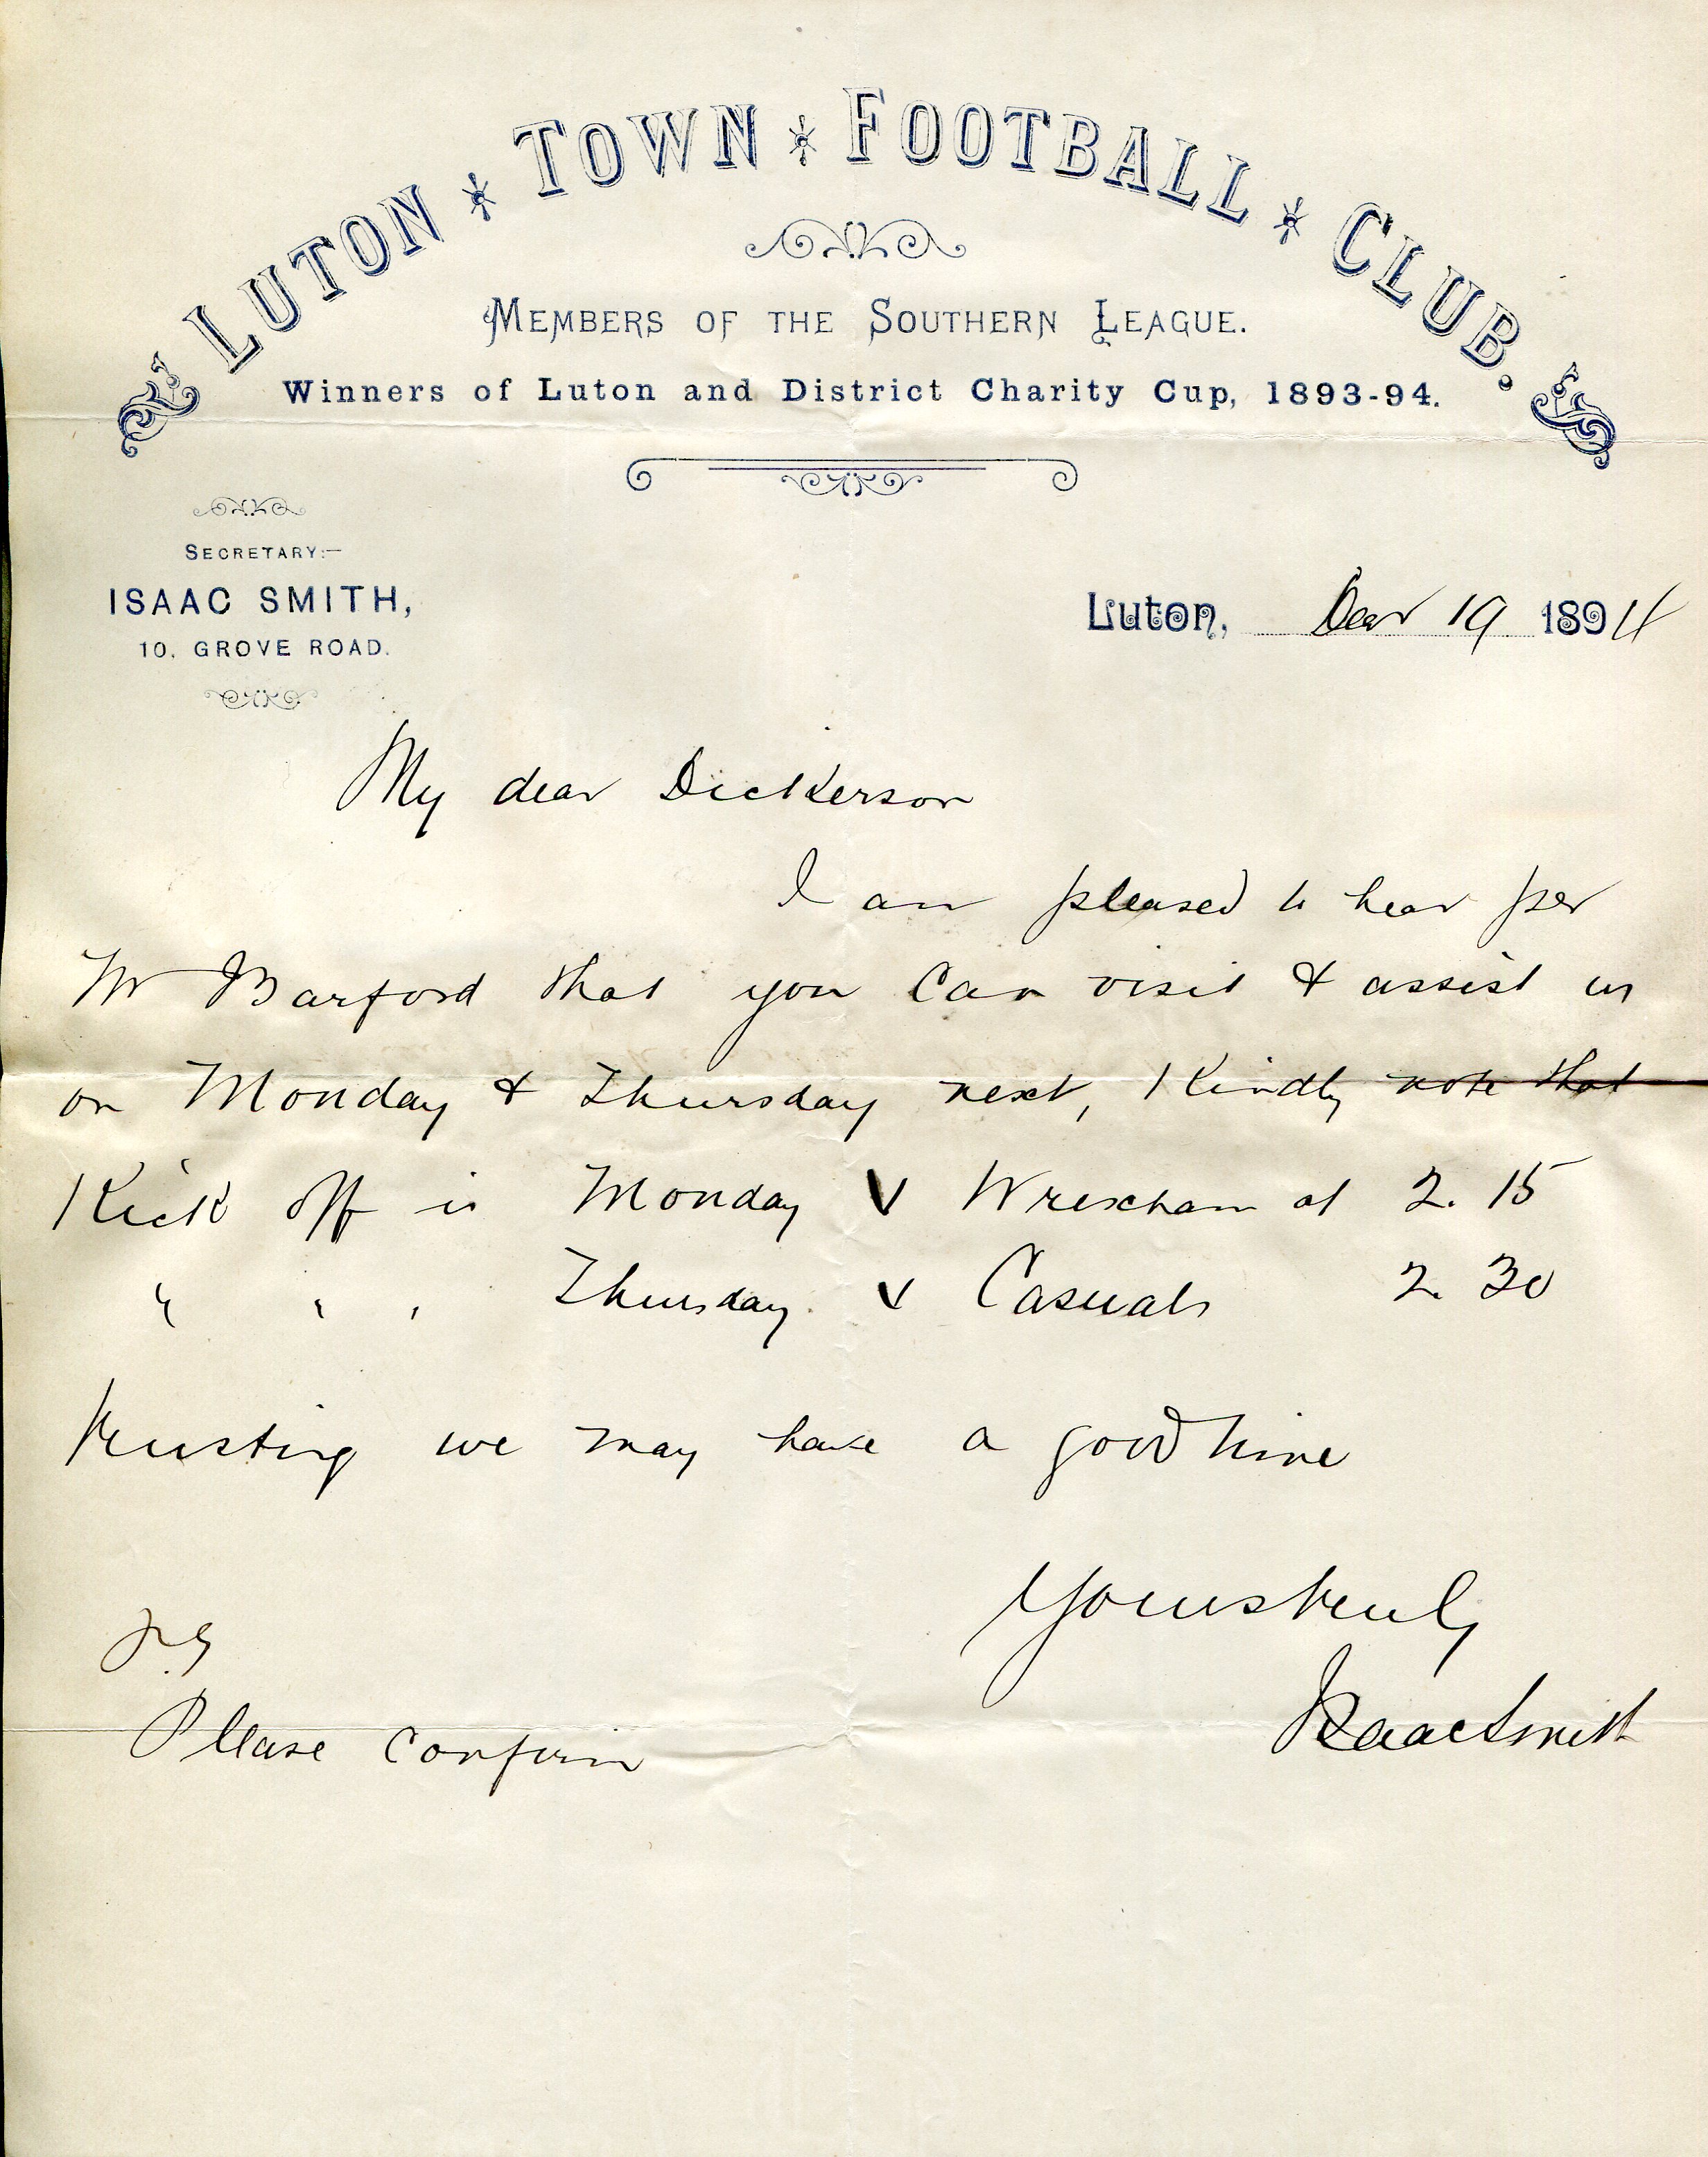 LUTON TOWN FOOTBALL CLUB.
MEMBERS OF THE SOUTHERN LEAGUE.
Winners of Luton and District Charity Cup, 1893-94.
SECRETARY:—
ISAAC SMITH,
10, GROVE ROAD.
Luton, 19 1894
My dear Dickerson
I am pleased to hear per
Mr Barford that you can visit & assist us
on Monday & Thursday next, Kindly note that
Kick off is Monday V Wrexham at 2. 15
" " " Thursday. v Casuals 2. 30
trusting we may have a good time
Yours truly
Isaac Smith
Please confirm